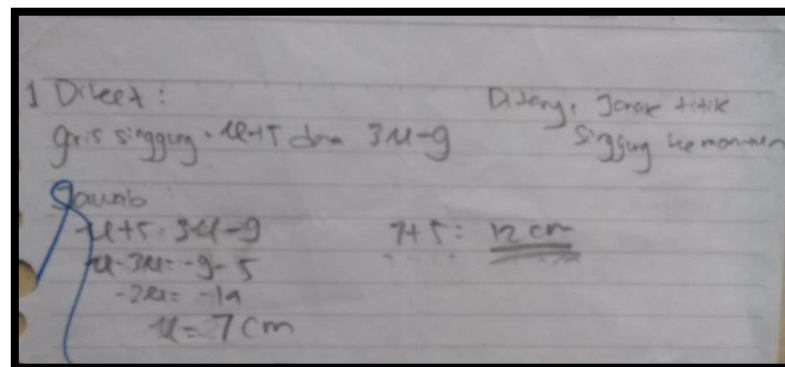 1 Diket :
garis singgung = x+5 dan 3x-9
Ditany : Jarak titik
singgung ke monumen
Jawab
x+5 = 3x-9
x-3x = -9-5
-2x = -14
x = 7 cm
7+5 = 12 cm